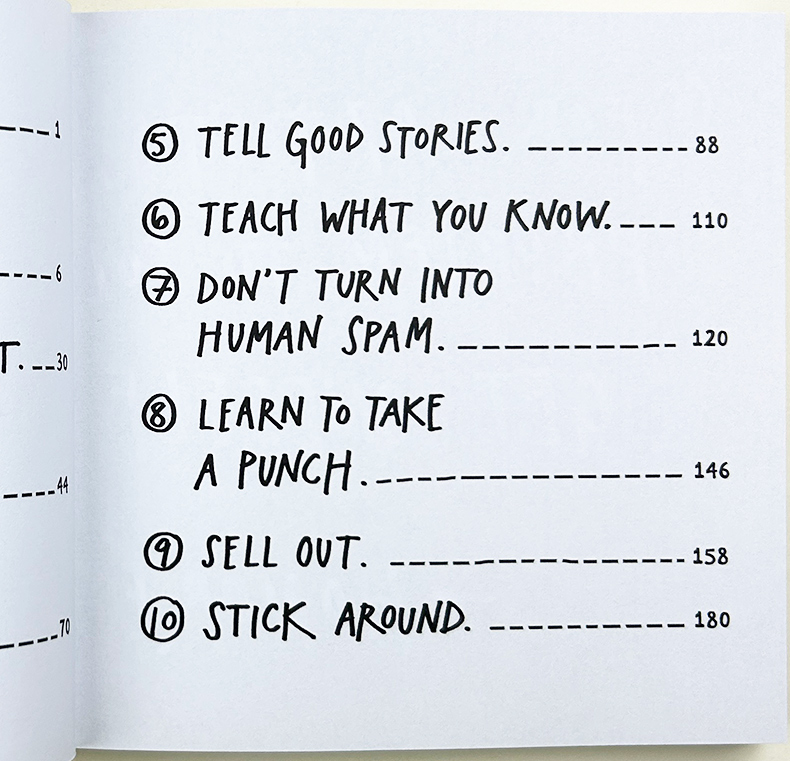 1
6
T. 30
44
70
⑤ TELL GOOD STORIES. 88
⑥ TEACH WHAT YOU KNOW. 110
⑦ DON'T TURN INTO
HUMAN SPAM. 120
⑧ LEARN TO TAKE
A PUNCH. 146
⑨ SELL OUT. 158
⑩ STICK AROUND. 180